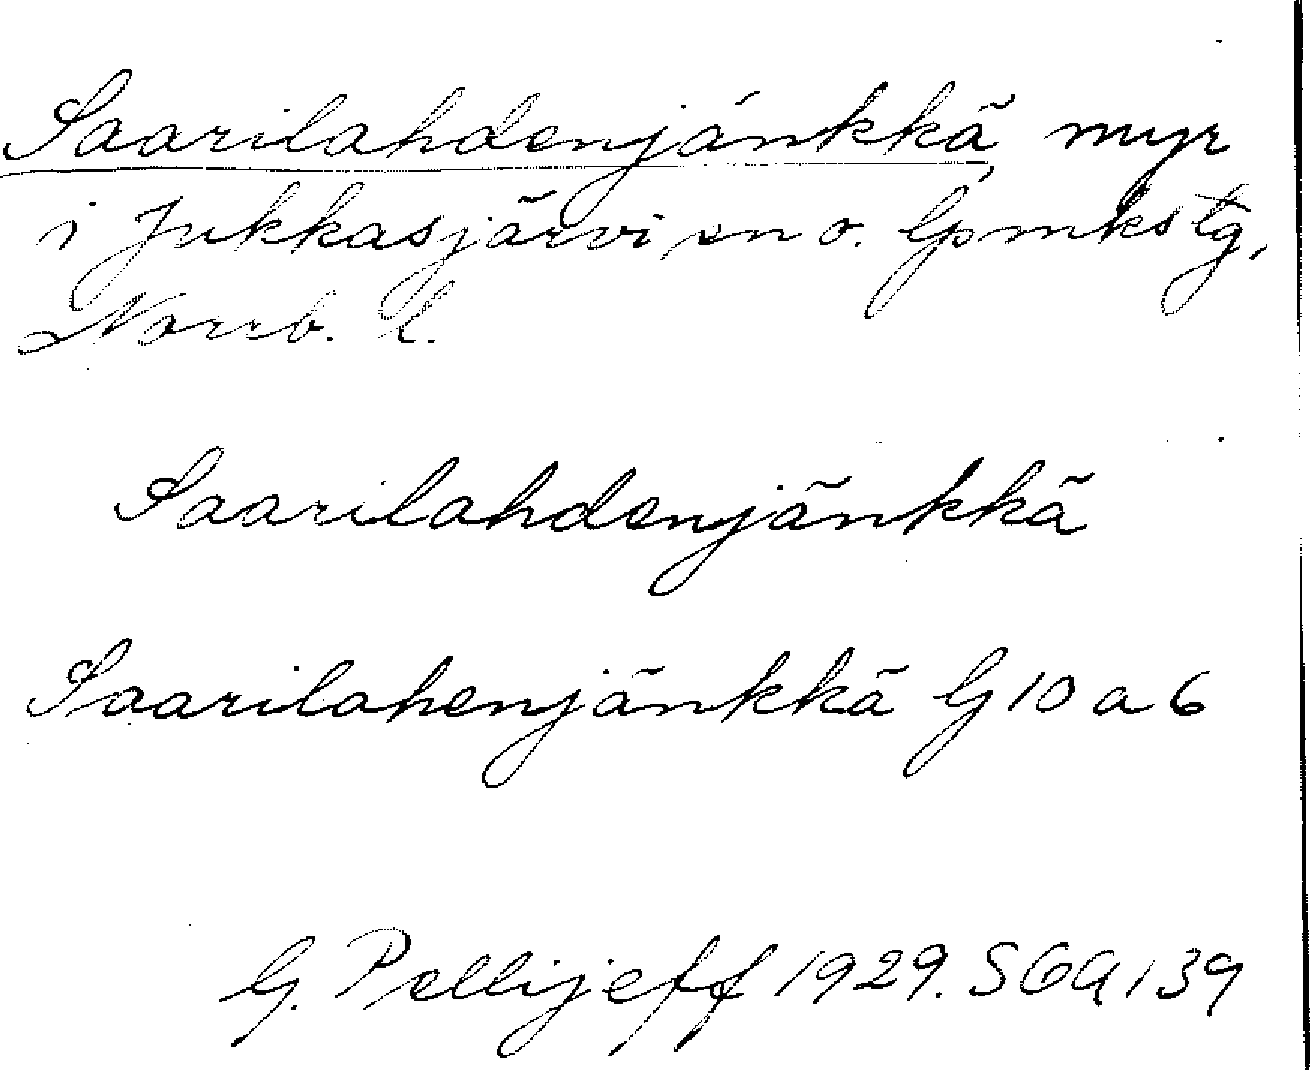 Saarilahdenjänkkä, myr
i Jukkasjärvi sn o. Gp mkstg,
Norrb. L.
Saarilahdenjänkkä
Saarilahenjänkkä G 10 a 6
G. Pellijeff 1929. SOA 139